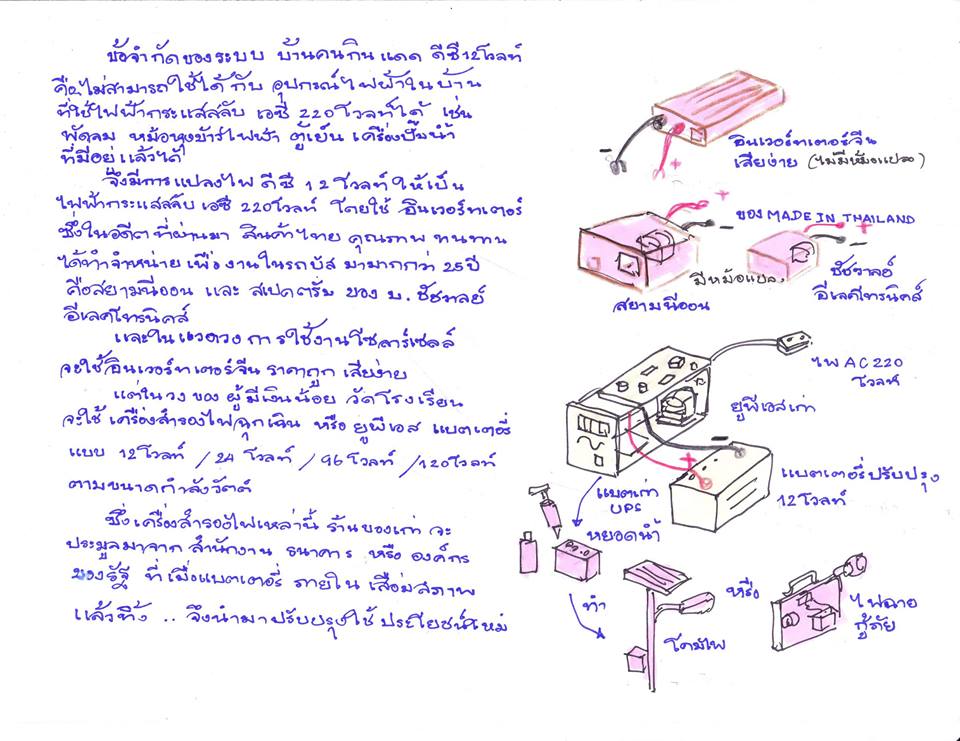 ข้อจำกัดของระบบ บ้านคนกินแดด ดีซี 12 โวลท์
คือ ไม่สามารถใช้ได้กับ อุปกรณ์ไฟฟ้าในบ้าน
ที่ใช้ไฟฟ้ากระแสสลับ เอซี 220 โวลท์ได้ เช่น
พัดลม หม้อหุงข้าวไฟฟ้า ตู้เย็น เครื่องปั๊มน้ำ
ที่มีอยู่แล้วได้
จึงมีการแปลงไฟ ดีซี 12 โวลท์ ให้เป็น
ไฟฟ้ากระแสสลับ เอซี 220 โวลท์ โดยใช้ อินเวอร์ทเตอร์
ซึ่งในอดีตที่ผ่านมา สินค้าไทย คุณภาพ ทนทาน
ได้ทำจำหน่าย เพื่องานในรถบัส มามากกว่า 25 ปี
คือสยามนีออน และ สเปคตรัม ของ บ. ชัชวาลย์
อีเลคโทรนิคส์
และในแวดวง การใช้งานโซลาร์เซลล์
จะใช้อินเวอร์ทเตอร์จีน ราคาถูก เสียง่าย
แต่ในวงของ ผู้มีเงินน้อย วัดโรงเรียน
จะใช้ เครื่องสำรองไฟฉุกเฉิน หรือ ยูพีเอส แบตเตอรี่
แบบ 12 โวลท์ / 24 โวลท์ / 96 โวลท์ / 120 โวลท์
ตามขนาดกำลังวัตต์
ซึ่งเครื่องสำรองไฟเหล่านี้ ร้านของเก่า จะ
ประมูลมาจาก สำนักงาน ธนาคาร หรือ องค์กร
ของรัฐ ที่เมื่อแบตเตอรี่ ภายใน เสื่อมสภาพ
แล้วทิ้ง .. จึงนำมาปรับปรุงใช้ประโยชน์ใหม่
อินเวอร์ทเตอร์จีน
เสียง่าย (ไม่มีหม้อแปลง)
ของ MADE IN THAILAND
มีหม้อแปลง
สยามนีออน
ชัชวาลย์
อีเลคโทรนิคส์
ไฟ AC 220
โวลท์
ยูพีเอสเก่า
แบตเตอรี่ปรับปรุง
12 โวลท์
แบตเก่า
UPS
หยอดน้ำ
ทำ
โคมไฟ
หรือ
ไฟฉาย
กู้ภัย